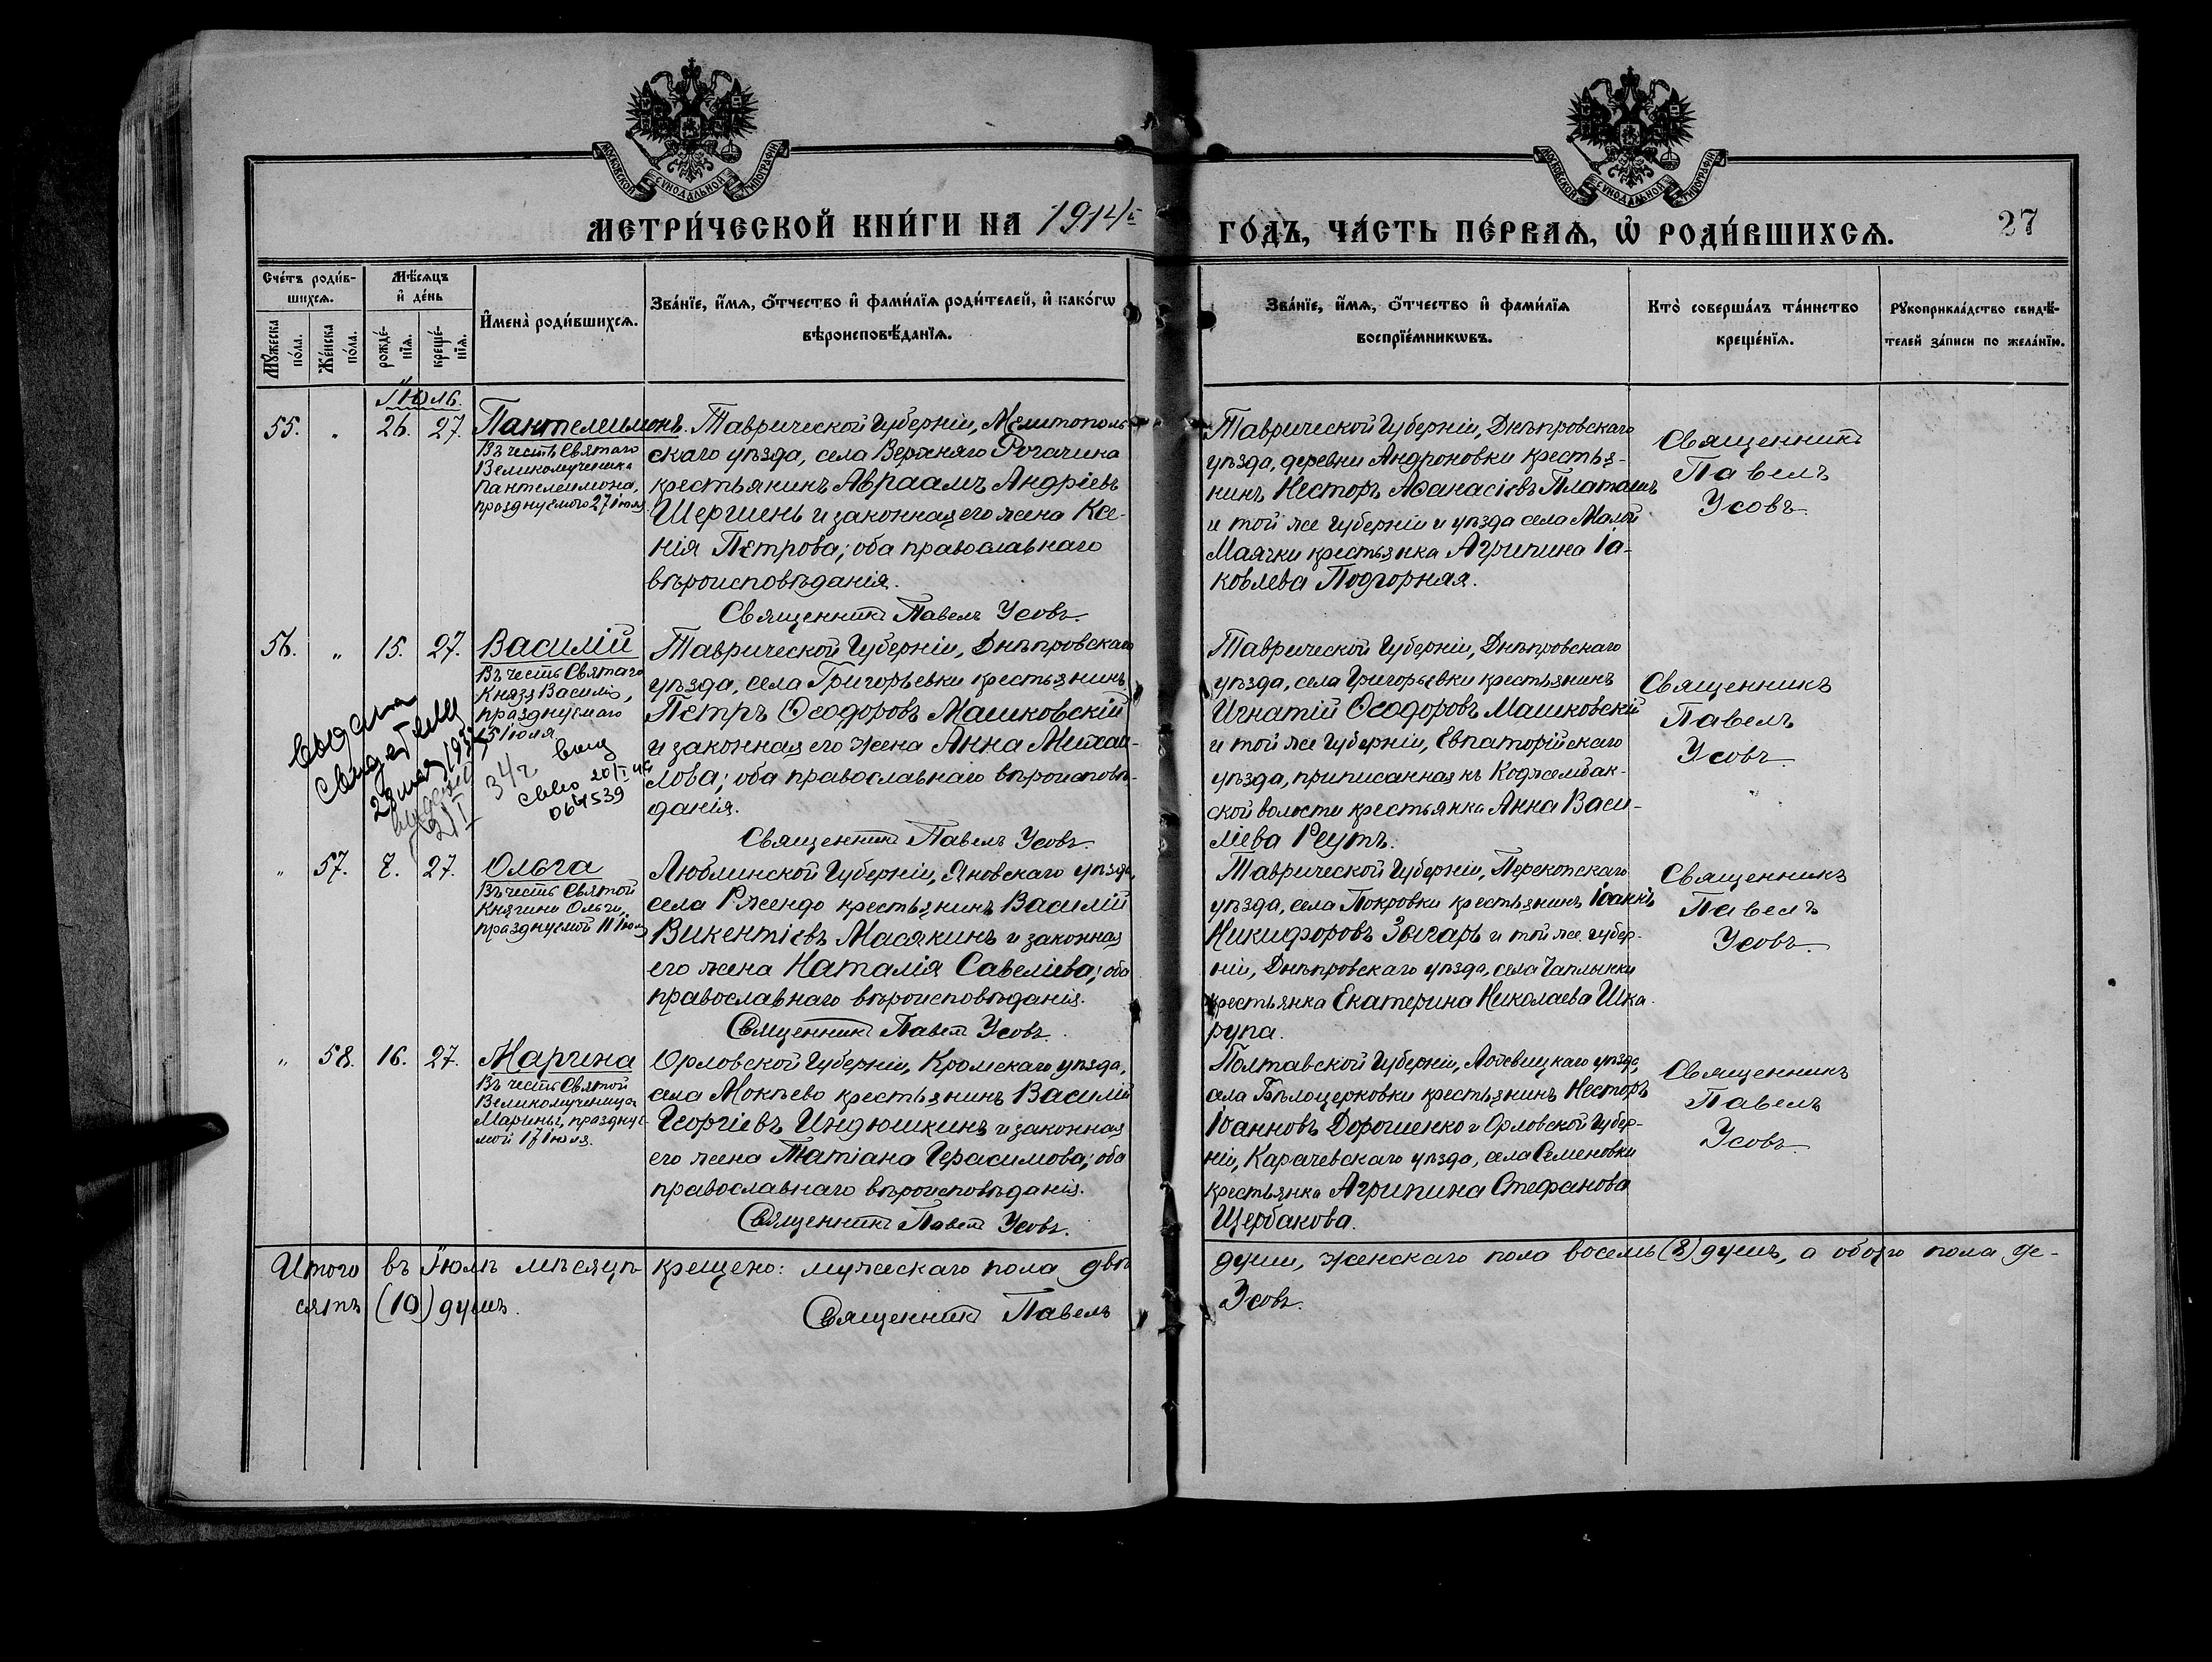 МОСКОВСКОЙ СѴНОДАЛЬНОЙ ТИПОГРАФІИ
МОСКОВСКОЙ СѴНОДАЛЬНОЙ ТИПОГРАФІИ
МЕТРИ́ЧЕСКОЙ КНИ́ГИ НА 1914 ГО́ДЪ, ЧА́СТЬ ПЕ́РВАѦ, Ѽ РОДИ́ВШИХСѦ.
27
Сче́тъ роди́в-
шихсѧ.
Мѣ́сѧцъ
и҆ де́нь
Мꙋ́жеска
по́ла.
Же́нска
по́ла.
рожде́-
нїѧ.
креще́-
нїѧ.
И҆мена̀ роди́вшихсѧ.
Зва́нїе, и҆́мѧ, ѻ҆́тчество и҆ фами́лїѧ роди́телей, и҆ како́гѡ
вѣроисповѣ́данїѧ.
Зва́нїе, и҆́мѧ, ѻ҆́тчество и҆ фами́лїѧ
воспрїе́мникѡвъ.
Кто̀ соверша́лъ та́инство
креще́нїѧ.
Рꙋкоприкла́дство свидѣ́-
телей за́писи по жела́нїю.
Іюль.
55. „ 26. 27. Пантелеимонъ.
Въ честь Святаго
Великомученика
Пантелеимона,
празднуемаго 27 Іюля
Таврической Губерніи, Мелитополь-
скаго уѣзда, села Верхняго Рогачика
крестьянинъ Авраамъ Андріевъ
Шершень и законная его жена Ксе-
нія Петрова; оба православнаго
вѣроисповѣданія.
Священникъ Павелъ Усовъ.
Таврической Губерніи, Днѣпровскаго
уѣзда, деревни Андроновки крестья-
нинъ Несторъ Аѳанасіевъ Платошъ
и той же губерніи и уѣзда села Малой
Маячки крестьянка Агрипина Іа-
ковлева Подгорная.
Священникъ
Павелъ
Усовъ
56. „ 15. 27. Василій
Въ честь Святаго
Князя Василія,
празднуемаго
15 Іюля
выдана
20/I 46
064539
Таврической Губерніи, Днѣпровскаго
уѣзда, села Григорьевки крестьянинъ
Петръ Ѳеодоровъ Машковскій
и законная его жена Анна Михаи-
лова; оба православнаго вѣроисповѣ-
данія.
Священникъ Павелъ Усовъ.
Таврической Губерніи, Днѣпровскаго
уѣзда, села Григорьевки крестьянинъ
Игнатій Ѳеодоровъ Машковскій
и той же Губерніи, Евпаторійскаго
уѣзда, приписанная къ Коджамбак-
ской волости крестьянка Анна Васи-
ліева Реутъ.
Священникъ
Павелъ
Усовъ
„ 57. 7. 27. Ольга
Въ честь Святой
Княгини Ольги,
празднуемой 11 Іюля
Люблинской Губерніи, Яновскаго уѣзда,
села Ржендо крестьянинъ Василій
Викентіевъ Масякинъ и законная
его жена Наталія Савеліева; оба
православнаго вѣроисповѣданія.
Священникъ Павелъ Усовъ.
Таврической Губерніи, Перекопскаго
уѣзда, села Покровки крестьянинъ Іоаннъ
Никифоровъ Звгарь и той же губер-
ніи, Днѣпровскаго уѣзда, села Чаплынки
крестьянка Екатерина Николаева Шка-
рупа.
Священникъ
Павелъ
Усовъ
„ 58. 16. 27. Марина
Въ честь Святой
Великомученицы
Марины, праздну-
мой 17 Іюля.
Орловской Губерніи, Кромскаго уѣзда,
села Мокѣево крестьянинъ Василій
Георгіевъ Индюшкинъ и законная
его жена Татіана Герасимова; оба
православнаго вѣроисповѣданія.
Священникъ Павелъ Усовъ.
Полтавской Губерніи, уѣзда,
села Бѣлоцерковки крестьянинъ Несторъ
Іоанновъ Дорошенко и Орловской Губер-
ніи, Карачевскаго уѣзда, села Семеновки
крестьянка Агрипина Стефанова
Щербакова.
Священникъ
Павелъ
Усовъ
Итого въ Іюлѣ мѣсяцѣ крещено: мужескаго пола двѣ души, женскаго пола восемь (8) душъ, а обоего пола де-
сять (10) душъ.
Священникъ Павелъ Усовъ.